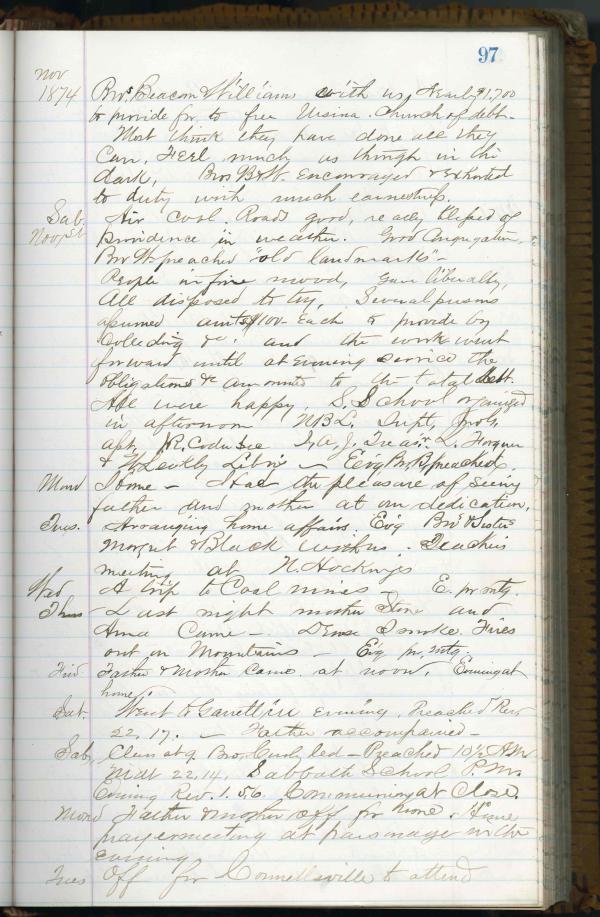 97
Nov
1874
Bros. Beacom & William with us, Nearly $1,700
to provide for to free Ursina Church of debt.
Most think they have done all they
Can, Feel much as though in the
dark, Bros B & W. Encouraged & Exhorted
to duty with much earnestness.
Sab Air Cool. Roads good,
Nov 1st providence in weather. Good Congregation,
Bro W. preached "old landmarks" -
People in fine mood, gave liberally,
All disposed to try, Several persons
assumed amts $100 - Each to provide by
Collecting &c. and the work went
forward until at Evening service the
obligations &c amounted to the total debt.
All were happy S. School organized
in afternoon N.B.L. Supt,
Treasr L.
& Libr - Evg Bro B, preached.
Mond Home - Had the pleasure of seeing
father and mother at our dedication,
Tues. Arranging home affairs. Evg Bro & Sister
& Black with us.
meeting at
Wed A trip to Coal mines - E. pr mtg.
Thurs - Last night mother Stone and
Anna Came - Dense Smoke. Fires
out on Mountains - Evg pr. mtg.
Frid Father & Mother Came at noon, Evening at
home.
Sat. Went to Garrett in Evening, Preached Rev
22, 17. - Father accompanied -
Sab, Class at 9 Bro. led - Preached 10½ A.M.
Matt 22,14, Sabbath School P.M.
Evening Rev. 1. 5.6. Communion at Close.
Mond Father & mother off for home. Have
prayermeeting at parsonage in the
evening
Tues Off for Connellsville to attend